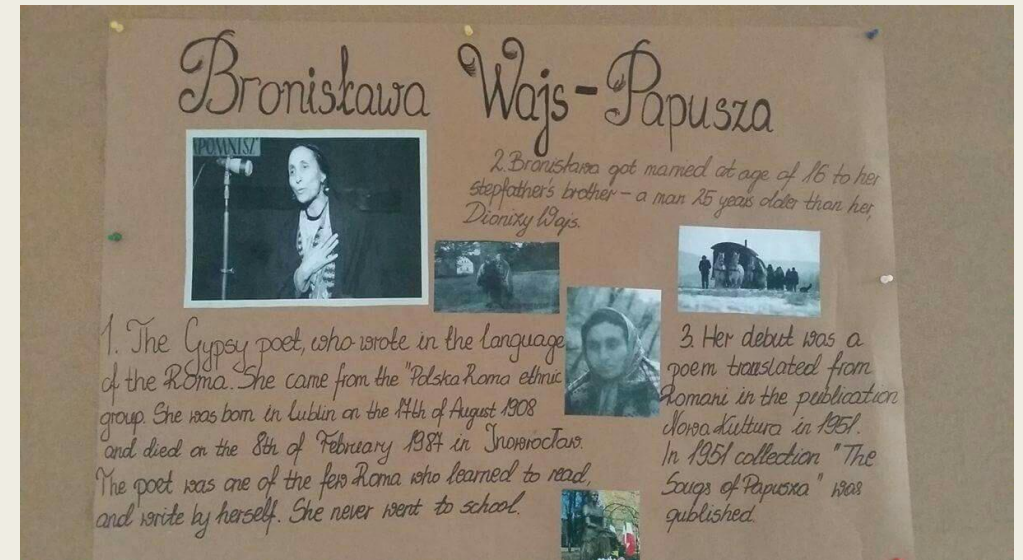 Bronisława Wajs-Papusza
POMNISZ"
2. Bronisława got married at age of 16 to her
stepfather's brother – a man 25 years older than her,
Dionizy Wajs.
1. The Gypsy poet, who wrote in the language
of the Roma. She came from the "Polska Roma ethnic
group. She was born in Lublin on the 17th of August 1908
and died on the 8th of February 1987 in Inowrocław.
The poet was one of the few Roma who learned to read,
and write by herself. She never went to school.
3. Her debut was a
poem translated from
Romani in the publication
Nowa Kultura in 1951.
In 1951 collection "The
Songs of Papusza" was
published.